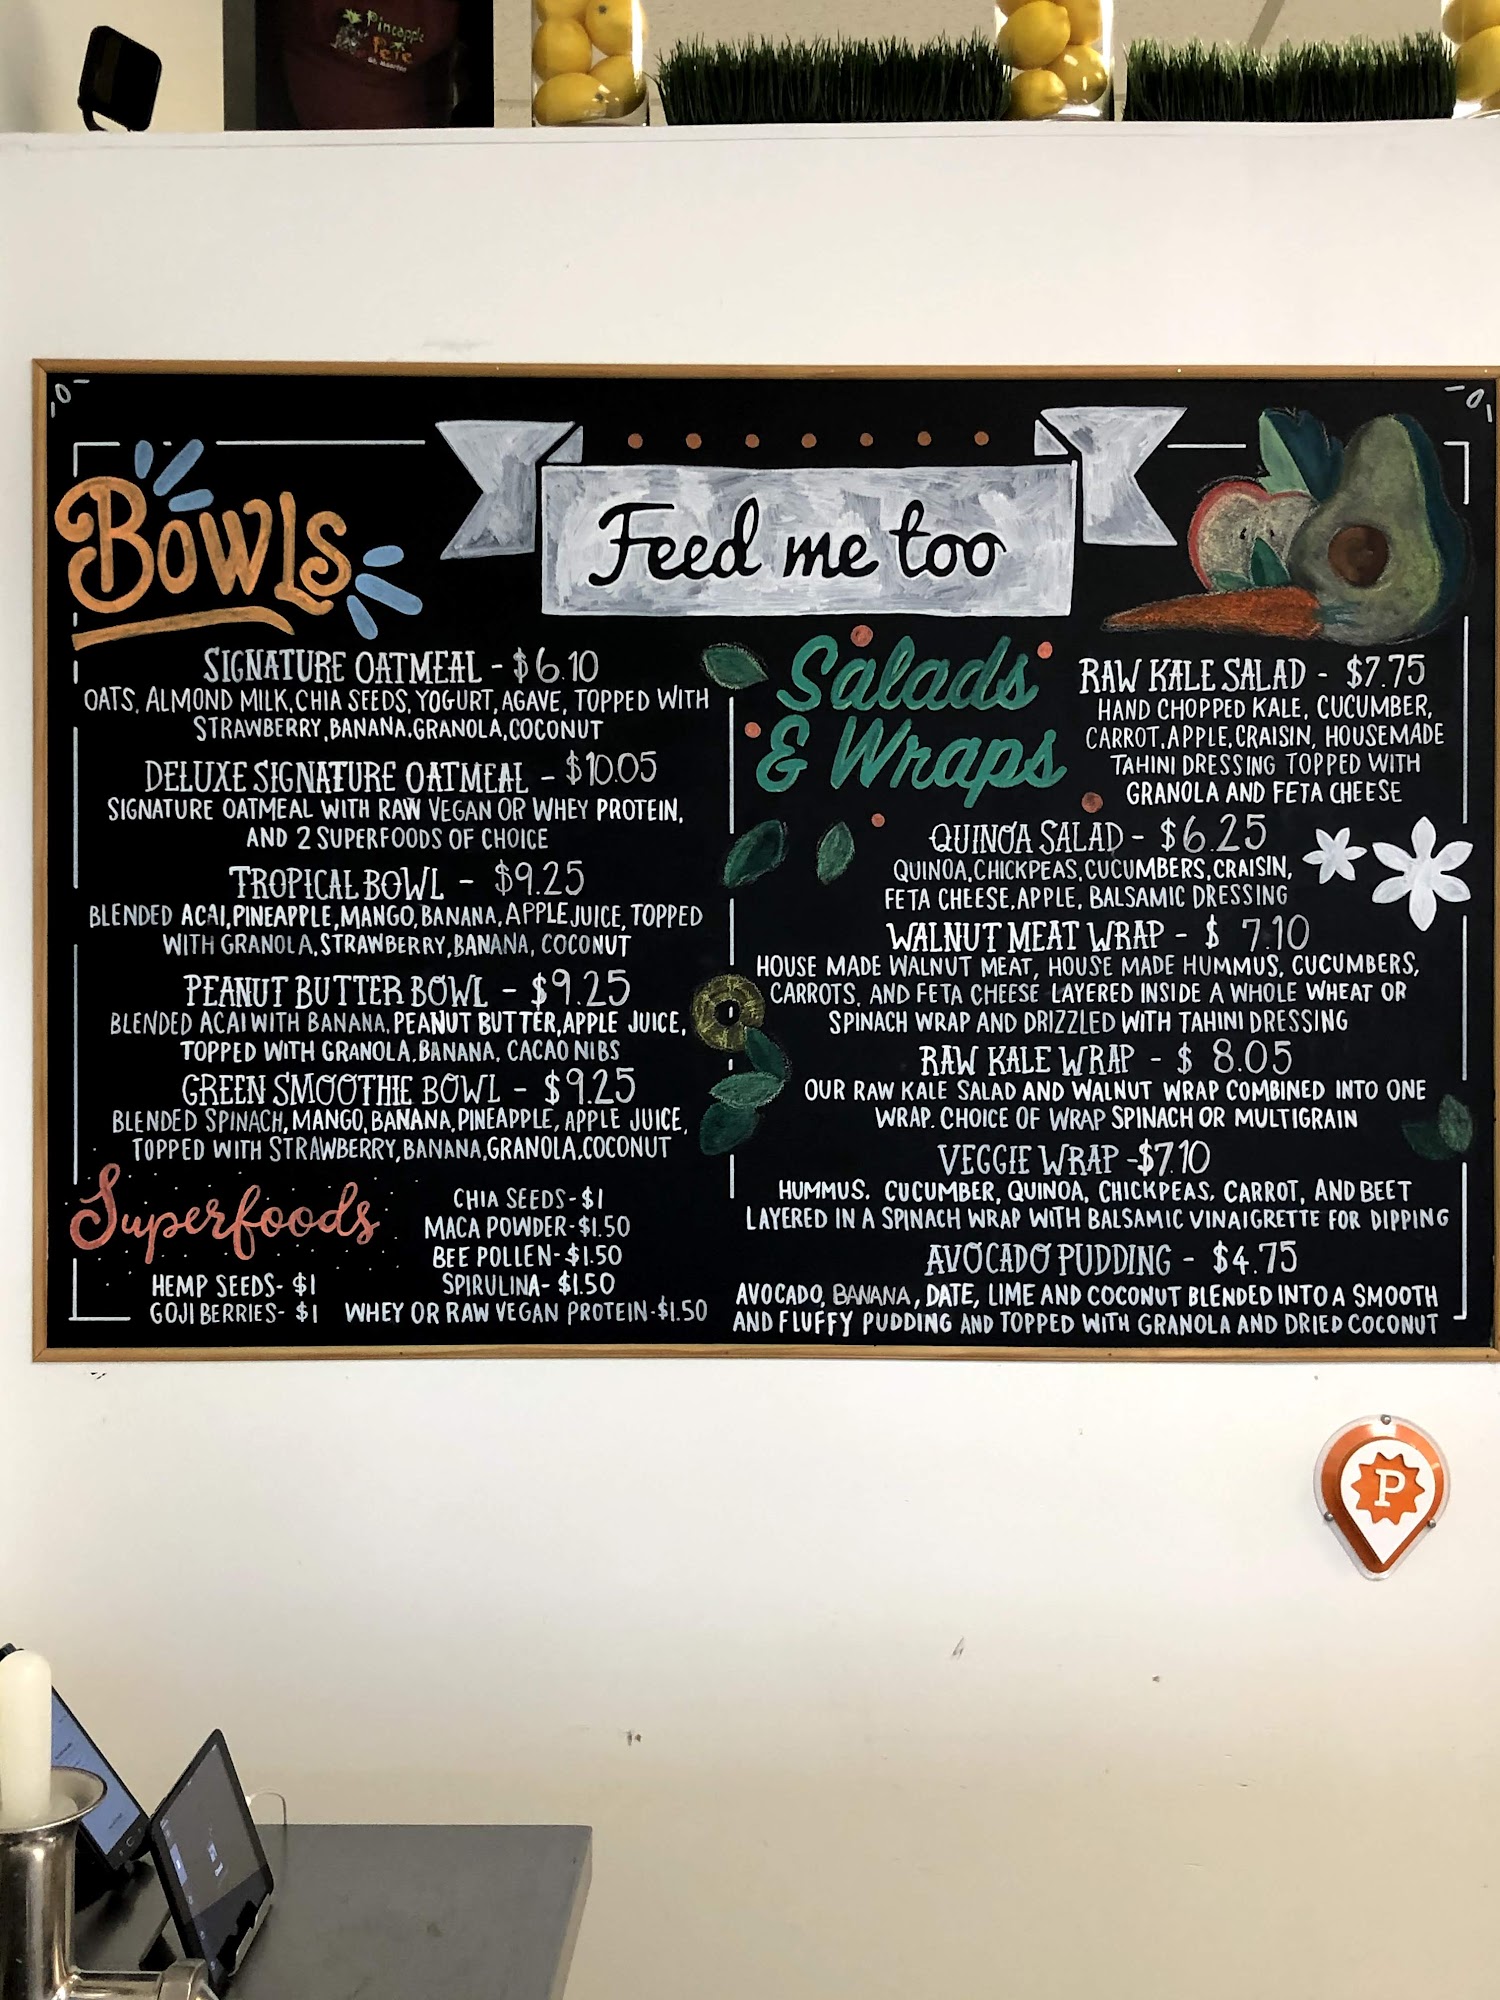 Pineapple
Pete
St. Maarten
Feed me too
Bowls
SIGNATURE OATMEAL - $6.10
OATS, ALMOND MILK, CHIA SEEDS, YOGURT, AGAVE, TOPPED WITH
STRAWBERRY, BANANA, GRANOLA, COCONUT
DELUXE SIGNATURE OATMEAL - $10.05
SIGNATURE OATMEAL WITH RAW VEGAN OR WHEY PROTEIN,
AND 2 SUPERFOODS OF CHOICE
TROPICAL BOWL - $9.25
BLENDED ACAI, PINEAPPLE, MANGO, BANANA, APPLE JUICE, TOPPED
WITH GRANOLA, STRAWBERRY, BANANA, COCONUT
PEANUT BUTTER BOWL - $9.25
BLENDED ACAI WITH BANANA, PEANUT BUTTER, APPLE JUICE,
TOPPED WITH GRANOLA, BANANA, CACAO NIBS
GREEN SMOOTHIE BOWL - $9.25
BLENDED SPINACH, MANGO, BANANA, PINEAPPLE, APPLE JUICE,
TOPPED WITH STRAWBERRY, BANANA, GRANOLA, COCONUT
Superfoods
HEMP SEEDS- $1
GOJI BERRIES- $1
CHIA SEEDS-$1
MACA POWDER-$1.50
BEE POLLEN-$1.50
SPIRULINA- $1.50
WHEY OR RAW VEGAN PROTEIN-$1.50
Salads
& Wraps
RAW KALE SALAD - $7.75
HAND CHOPPED KALE, CUCUMBER,
CARROT, APPLE, CRAISIN, HOUSEMADE
TAHINI DRESSING TOPPED WITH
GRANOLA AND FETA CHEESE
QUINOA SALAD - $6.25
QUINOA, CHICKPEAS, CUCUMBERS, CRAISIN,
FETA CHEESE, APPLE, BALSAMIC DRESSING
WALNUT MEAT WRAP - $ 7.10
HOUSE MADE WALNUT MEAT, HOUSE MADE HUMMUS, CUCUMBERS,
CARROTS, AND FETA CHEESE LAYERED INSIDE A WHOLE WHEAT OR
SPINACH WRAP AND DRIZZLED WITH TAHINI DRESSING
RAW KALE WRAP - $ 8.05
OUR RAW KALE SALAD AND WALNUT WRAP COMBINED INTO ONE
WRAP. CHOICE OF WRAP SPINACH OR MULTIGRAIN
VEGGIE WRAP -$7.10
HUMMUS, CUCUMBER, QUINOA, CHICKPEAS, CARROT, AND BEET
LAYERED IN A SPINACH WRAP WITH BALSAMIC VINAIGRETTE FOR DIPPING
AVOCADO PUDDING - $4.75
AVOCADO, BANANA, DATE, LIME AND COCONUT BLENDED INTO A SMOOTH
AND FLUFFY PUDDING AND TOPPED WITH GRANOLA AND DRIED COCONUT
P